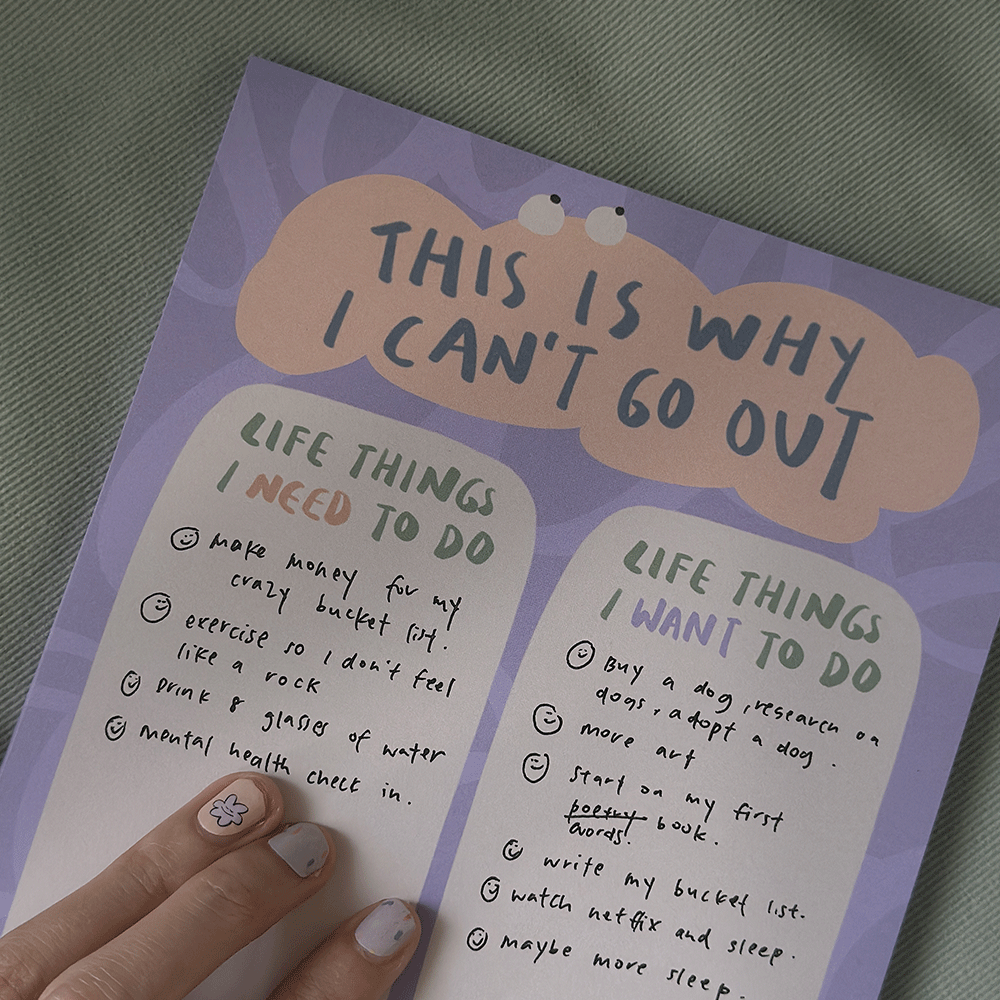 THIS IS WHY
I CAN'T GO OUT
LIFE THINGS
I NEED TO DO
make money for my
crazy bucket list.
exercise so I don't feel
like a rock
Drink 8 glasses of water
mental health check in.
LIFE THINGS
I WANT TO DO
Buy a dog, research on
dogs, adopt a dog.
more art
start on my first
poetry book.
words!
write my bucket list.
watch netflix and sleep.
maybe more sleep.